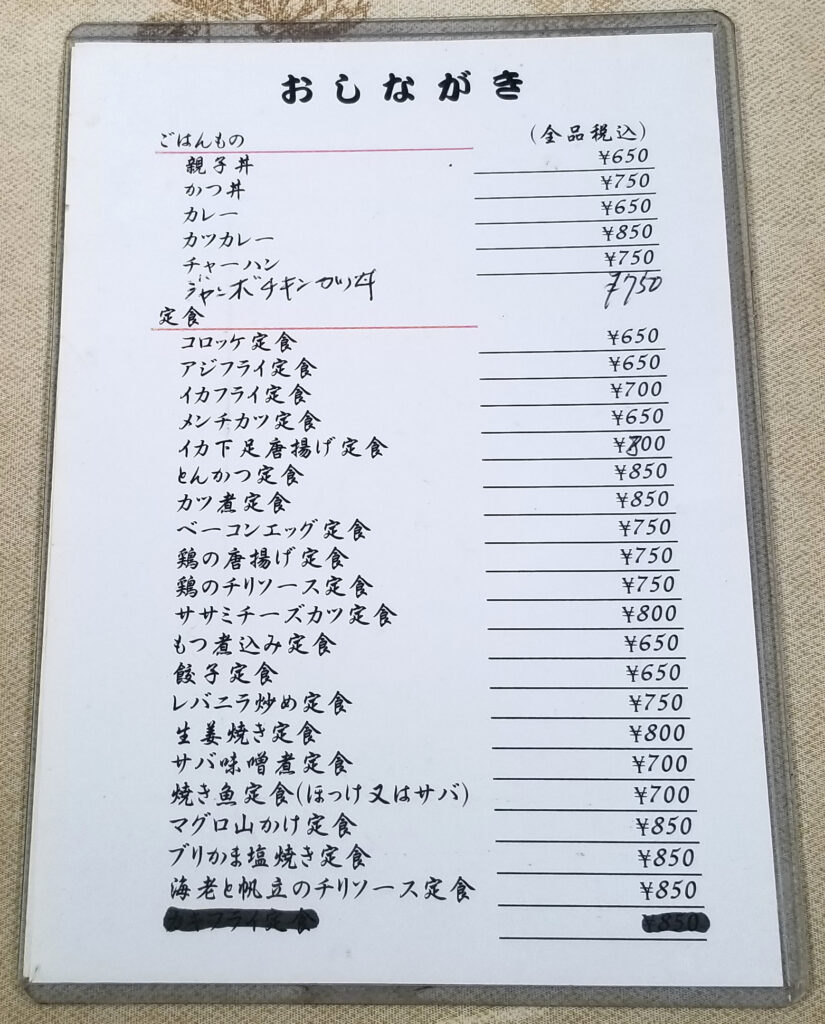 おしながき
(全品税込)
ごはんもの
親子丼 ¥650
かつ丼 ¥750
カレー ¥650
カツカレー ¥850
チャーハン ¥750
ジャンボチキンカツ丼 ¥750
定食
コロッケ定食 ¥650
アジフライ定食 ¥650
イカフライ定食 ¥700
メンチカツ定食 ¥650
イカ下足唐揚げ定食 ¥800
とんかつ定食 ¥850
カツ煮定食 ¥850
ベーコンエッグ定食 ¥750
鶏の唐揚げ定食 ¥750
鶏のチリソース定食 ¥750
ササミチーズカツ定食 ¥800
もつ煮込み定食 ¥650
餃子定食 ¥650
レバニラ炒め定食 ¥750
生姜焼き定食 ¥800
サバ味噌煮定食 ¥700
焼き魚定食(ほっけ又はサバ) ¥700
マグロ山かけ定食 ¥850
ブリかま塩焼き定食 ¥850
海老と帆立のチリソース定食 ¥850
カキフライ定食 ¥850